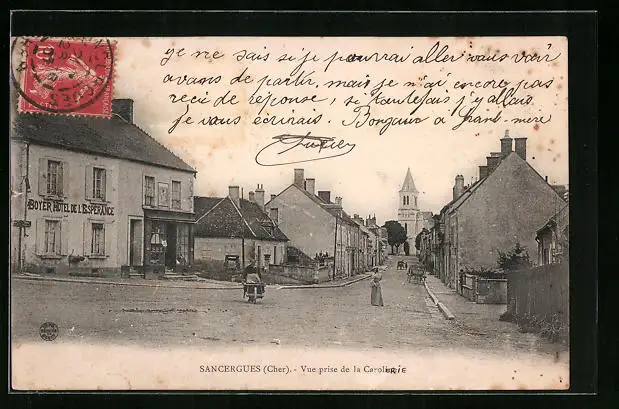 je ne sais si je pourrai aller vous voir
avans de partir, mais je n'ai encore pas
reçu de réponse, si toutefois j'y allais
je vous écrirais. Bonjour à grand-mère
BOYER HOTEL DE L'ESPERANCE
SANCERGUES (Cher). - Vue prise de la Carolierie